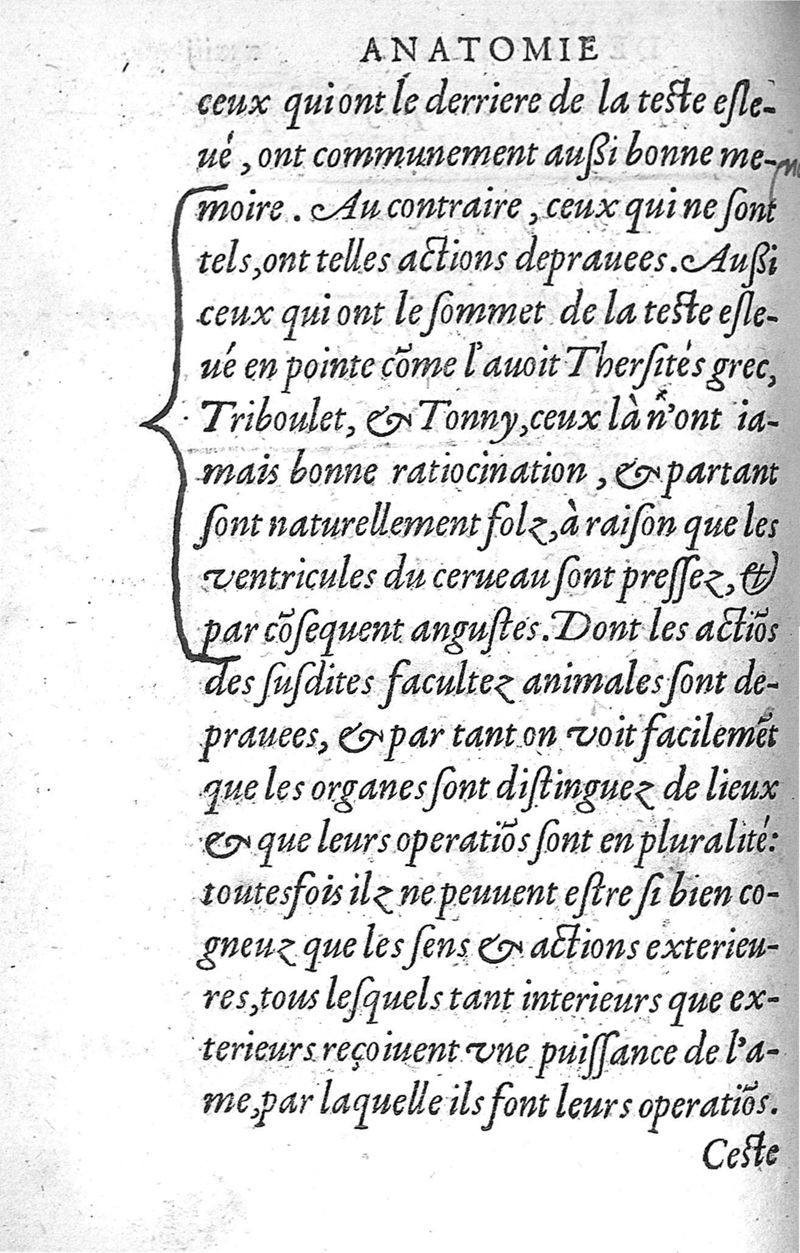 ANATOMIE
ceux qui ont le derriere de la teste esle-
ué, ont communement außi bonne me-
moire. Au contraire, ceux qui ne ſont
tels, ont telles actions deprauees. Außi
ceux qui ont le ſommet de la teste eſle-
ué en pointe cõme l'auoit Therſités grec,
Triboulet, & Tonny, ceux là n'ont ia-
mais bonne ratiocination, & partant
ſont naturellement folz, à raiſon que les
ventricules du cerueau ſont preſſez, &
par cõſequent anguſtes. Dont les actiõs
des ſuſdites facultez animales ſont de-
prauees, & par tant on voit facilemẽt
que les organes ſont diſtinguez de lieux
& que leurs operatiõs ſont en pluralité:
toutesfois ilz ne peuuent eſtre ſi bien co-
gneuz que les ſens & actions exterieu-
res, tous leſquels tant interieurs que ex-
terieurs reçoiuent vne puiſſance de l'a-
me, par laquelle ils font leurs operatiõs.
Ceste